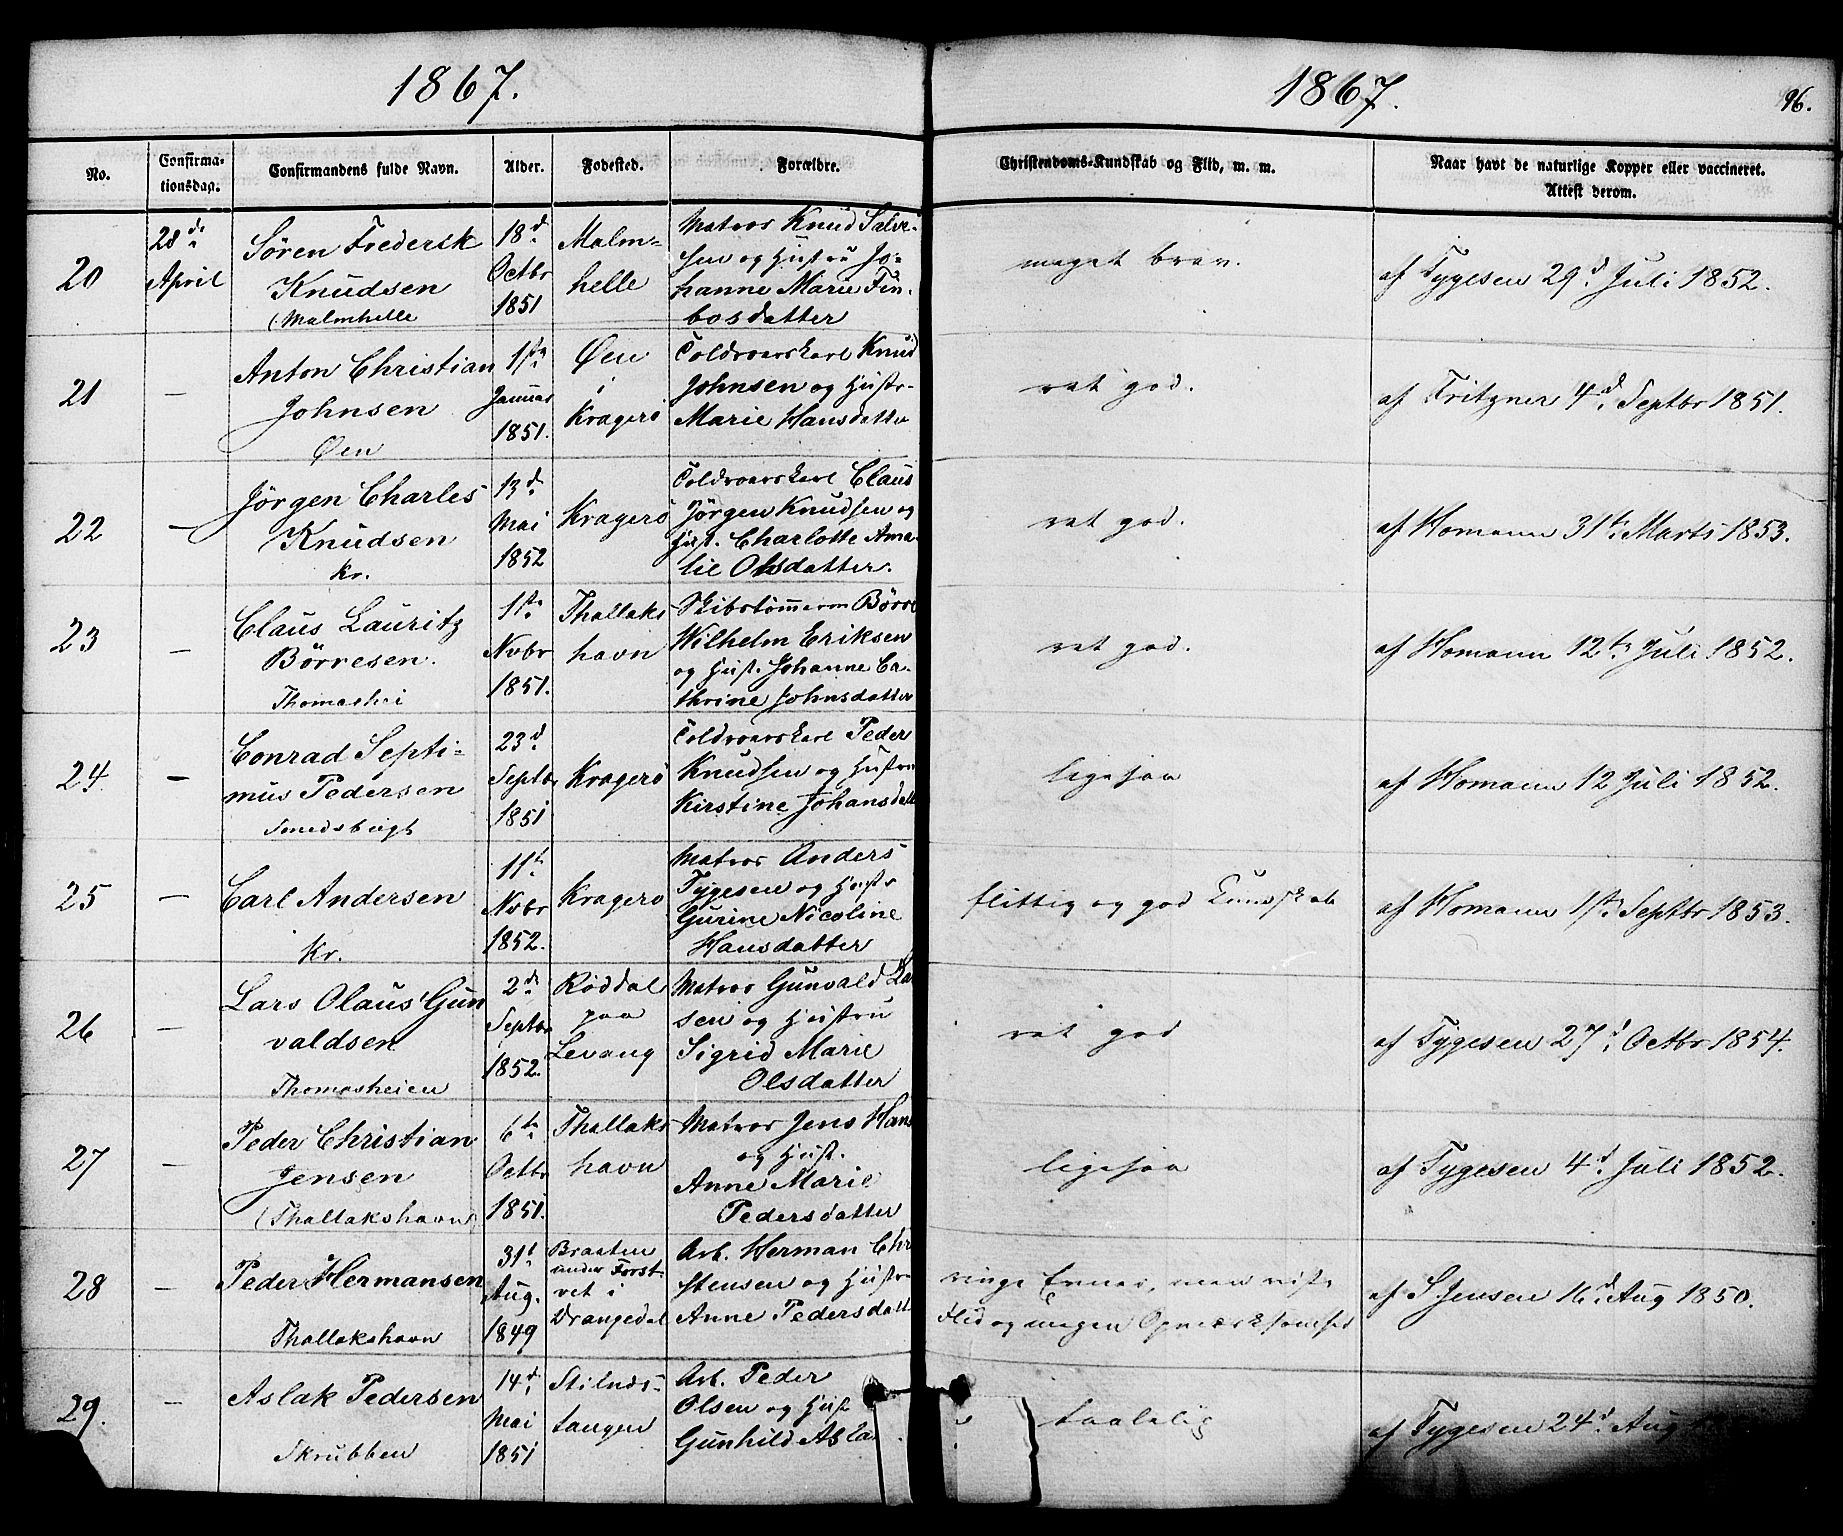 1867.
1867.
96.
No.
Confirma-
tionsdag.
Confirmandens fulde Navn.
Alder.
Fødested.
Forældre.
Christendoms-Kundskab og Flid, m. m.
Naar havt de naturlige Kopper eller vaccineret.
Attest derom.
20
28de
April
Sören Frederik
Knudsen
(Malmhelle
18d
Octbr
1851
Malm-
helle
Matros Knud Salve-
sen og Hustru Jo-
hanne Marie Fin-
bosdatter
meget brav.
af Tygesen 29d Juli 1852.
21
—
Anton Christian
Johnsen
Øen
1ste
Januar
1851.
Øen
i
Kragerö
Toldroerskarl Knud
Johnsen og Hustr.
Marie Hansdatter
ret god.
af Fritzner 4d Septbr 1851.
22
—
Jörgen Charles
Knudsen
Kr.
13d
Mai
1852
Kragerö
Toldroerskarl Claus
Jörgen Knudsen og
Hust. Charlotte Ama-
lie Olsdatter.
ret god.
af Homann 31te Marts 1853.
23
—
Claus Lauritz
Börresen.
Thomashei
1ste
Novbr
1851.
Thallaks
havn
Skibstømmerm Börre
Wilhelm Eriksen
og Hust. Johanne Ca-
thrine Johnsdatter
ret god.
af Homann 12te Juli 1852.
24.
—
Conrad Septi-
mus Pedersen
Smedsbugt
23d
Septbr
1851
Kragerö
Toldroerskarl Peder
Knudsen og Hustru
Kirstine Johansdatt
ligesaa
af Homann 12 Juli 1852.
25
—
Carl Andersen
Kr.
11t
Novbr
1852.
Kragerö
Matros Anders
Tygesen og Hustr
Gurine Nicoline
Hansdatter
flittig og god Kundskab
af Homann 1ste Septbr 1853.
26
—
Lars Olaus Gun
valdsen
Thomasheien
2de
Septbr
1852.
Röddal
paa
Levang
Matros Gunvald La
sen og Hustru
Sigrid Marie
Olsdatter
ret god
af Tygesen 27d Octbr 1854.
27
—
Peder Christian
Jensen
(Thallakshavn)
6te
Octbr
1851.
Thallaks
havn
Matros Jens Hans
og Hust.
Anne Marie
Pedersdatter
ligesaa
af Tygesen 4d Juli 1852.
28
—
Peder Hermansen
Thallakshavn
31t
Aug.
1849
Braaten
under Forst-
vet i
Drangedal
Arb. Herman Chr
stensen og Hustru
Anne Pedersdatt
ringe Evner, men viist
Flid og megen Opmærksomhed
af S. Jensen 16d Aug 1850.
29.
—
Aslak Pedersen
Skrubben
14d
Mai
1851
Stilnds-
tangen
Arb. Peder
Olsen og Hust
Gunhild Asla
taalelig
af Tygesen 24d Aug